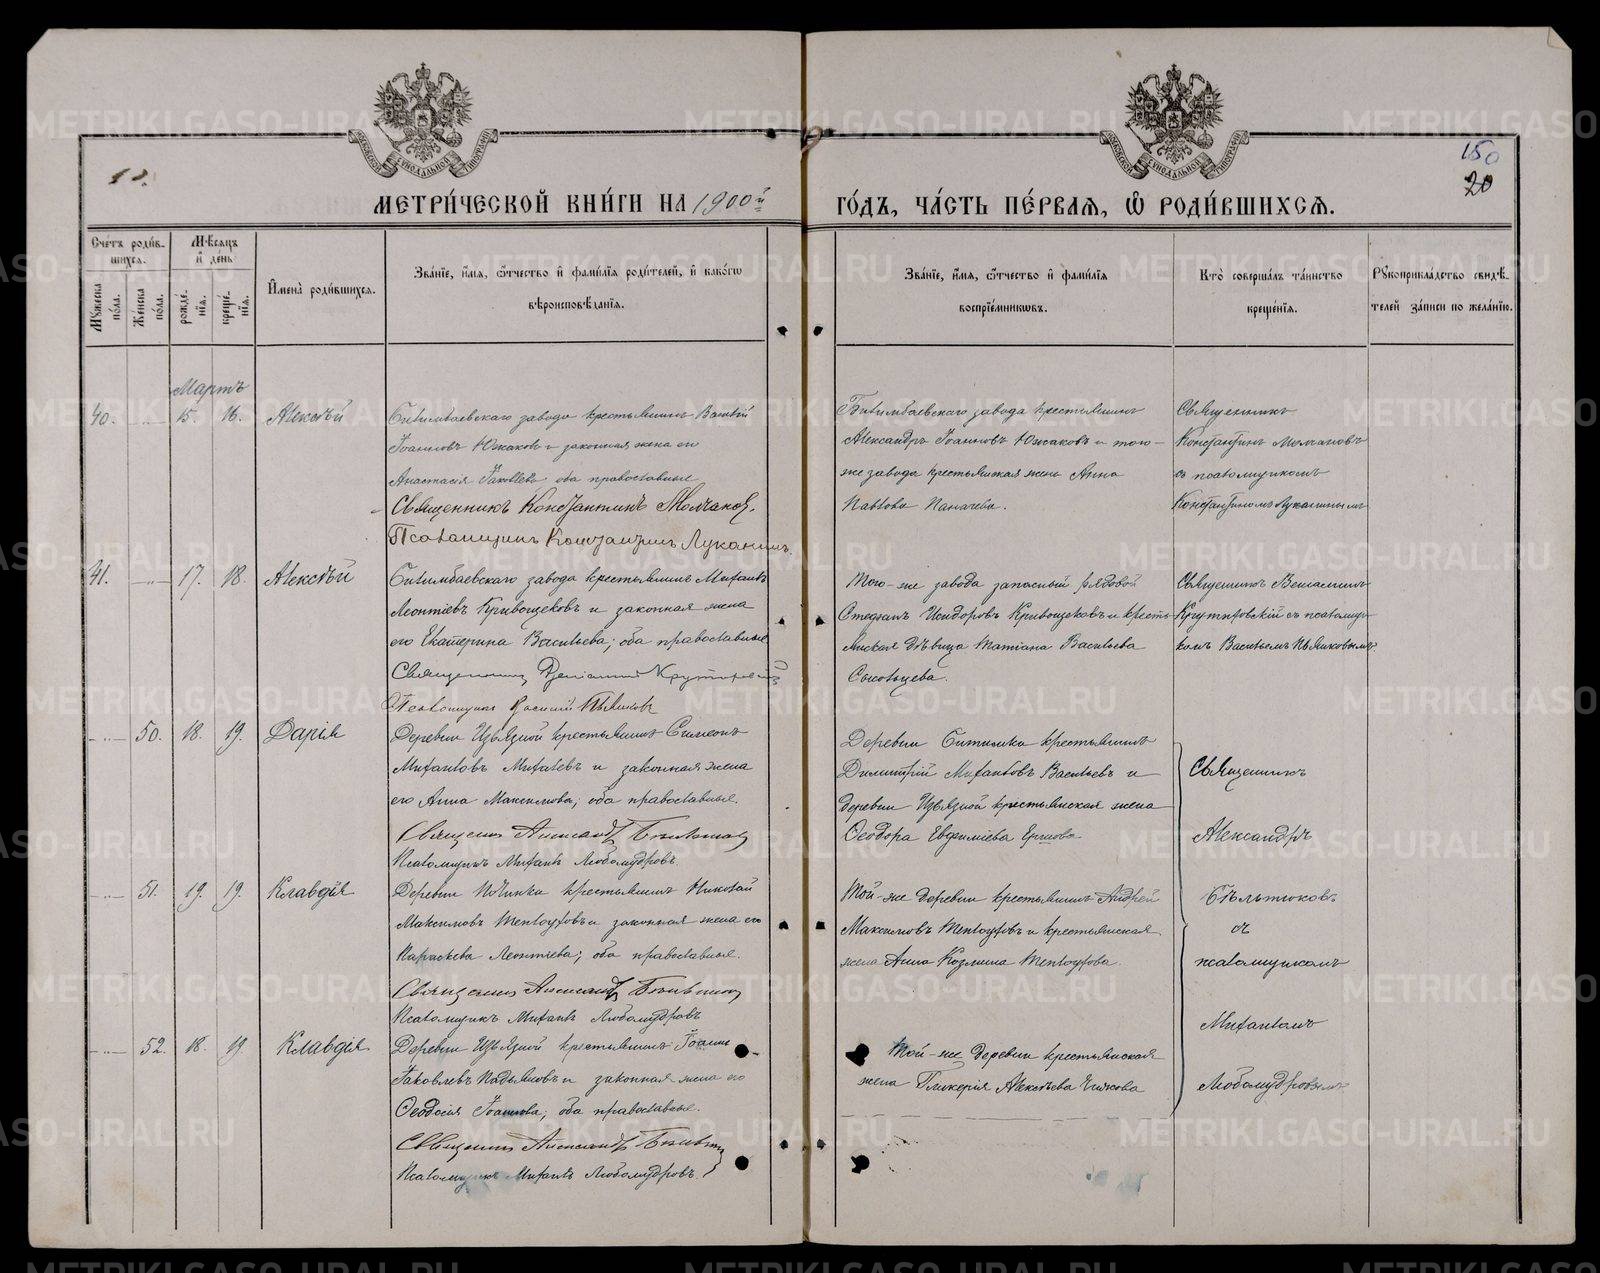 METRIKI.GASO-URAL.RU
12.
150
20
МЕТРИ́ЧЕСКОЙ КНИ́ГИ НА 1900й
ГО́ДЪ, ЧА́СТЬ ПЕ́РВАЯ, Ѽ РОДИ́ВШИХСЯ.
Сче́тъ роди́в-
шихся.
Мѣ́сяцъ
и́ де́нь
Мꙋ́жеска по́ла.
Же́нска по́ла.
рожде́нїя.
креще́нїя.
И҆мена̀ роди́вшихся.
Зва́нїе, и҆́мя, ѻ҆́тчество и҆ фами́лїя роди́телей, и҆ како́гѡ
вѣроисповѣ́данїя.
Зва́нїе, и҆́мя, ѻ҆́тчество и҆ фами́лїя
воспрїе́мникѡвъ.
Кто̀ соверша́лъ та́инство
креще́нїя.
Рꙋкоприкла́дство свидѣ́-
телей за́писи по жела́нїю.
Мартъ
40. 15. 16. Алексѣй
Билимбаевскаго завода крестьянинъ Василій
Іоанновъ Южаковъ и законная жена его
Анастасія Іаковлева оба православные
Священникъ Константинъ Молчановъ.
Псаломщикъ Константинъ Луканинъ.
Билимбаевскаго завода крестьянинъ
Александръ Іоанновъ Южаковъ и того-
же завода крестьянская жена Анна
Павлова Паначева.
Священникъ
Константинъ Молчановъ
съ псаломщикомъ
Константиномъ Луканинымъ
41. 17. 18. Алексѣй
Билимбаевскаго завода крестьянинъ Михаилъ
Леонтіевъ Кривощековъ и законная жена
его Екатерина Васильева; оба православные
Священникъ Веніаминъ Крутиховскій
Псаломщикъ Василій Пьянковъ
Того-же завода запасный рядовой
Стефанъ Исидоровъ Кривощековъ и кресть-
янская дѣвица Татіана Васильева
Священникъ Веніаминъ
Крутиховскій съ псаломщи-
комъ Васильемъ Пьянковымъ.
50. 18. 19. Дарія
Деревни Извязной крестьянинъ Симеонъ
Михаиловъ Михалевъ и законная жена
его Анна Максимова; оба православные.
Священникъ Александръ Бѣльтюковъ
Псаломщикъ Михаилъ Любомудровъ
Деревни Битимка крестьянинъ
Димитрій Михаиловъ Васильевъ и
деревни Извязной крестьянская жена
Ѳеодора Евфиміева Ершова
Священникъ
Александръ
Бѣльтюковъ
съ
псаломщикомъ
Михаиломъ
Любомудровымъ
51. 19. 19. Клавдія
Деревни Починка крестьянинъ Николай
Максимовъ Теплоуховъ и законная жена его
Параскева Леонтіева; оба православные.
Священникъ Александръ Бѣльтюковъ
Псаломщикъ Михаилъ Любомудровъ
Той-же деревни крестьянинъ Андрей
Максимовъ Теплоуховъ и крестьянская
жена Анна Козмина Теплоухова.
52. 18. 19 Клавдія
Деревни Извязной крестьянинъ Іоаннъ
Іаковлевъ Падьяновъ и законная жена его
Ѳеодосія Іоаннова; оба православные.
Священникъ Александръ Бѣльтюковъ
Псаломщикъ Михаилъ Любомудровъ.
Той-же деревни крестьянская
жена Гликерія Алексѣева Чижова